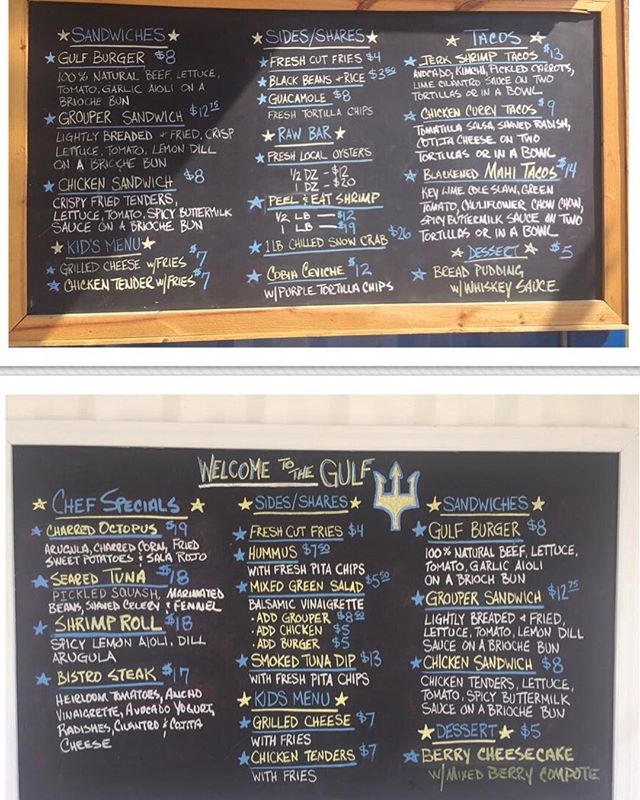 SANDWICHES
GULF BURGER $8
100% NATURAL BEEF, LETTUCE,
TOMATO, GARLIC AIOLI ON A
BRIOCHE BUN
GROUPER SANDWICH $12.75
LIGHTLY BREADED + FRIED, CRISP
LETTUCE, TOMATO, LEMON DILL
ON A BRIOCHE BUN
CHICKEN SANDWICH $8
CRISPY FRIED TENDERS,
LETTUCE, TOMATO, SPICY BUTTERMILK
SAUCE ON A BRIOCHE BUN
KID'S MENU
GRILLED CHEESE W/FRIES $7
CHICKEN TENDER W/FRIES $7
SIDES/SHARES
FRESH CUT FRIES $4
BLACK BEANS + RICE $3.50
GUACAMOLE $8
FRESH TORTILLA CHIPS
RAW BAR
FRESH LOCAL OYSTERS
1/2 DZ - $12
1 DZ - $20
PEEL & EAT SHRIMP
1/2 LB - $12
1 LB - $19
1 LB CHILLED SNOW CRAB $26
COBIA CEVICHE $12
W/PURPLE TORTILLA CHIPS
TACOS
JERK SHRIMP TACOS $13
AVOCADO, KIMCHI, PICKLED CARROTS,
LIME CILANTRO SAUCE ON TWO
TORTILLAS OR IN A BOWL
CHICKEN CURRY TACOS $9
TOMATILLA SALSA, SHAVED RADISH,
COTIJA CHEESE ON TWO
TORTILLAS OR IN A BOWL
BLACKENED MAHI TACOS $14
KEY LIME COLE SLAW, GREEN
TOMATO, CAULIFLOWER CHOW CHOW,
SPICY BUTTERMILK SAUCE ON TWO
TORTILLAS OR IN A BOWL
DESSERT $5
BREAD PUDDING
W/WHISKEY SAUCE
WELCOME TO THE GULF
CHEF SPECIALS
CHARRED OCTOPUS $19
ARUGULA, CHARRED CORN, FRIED
SWEET POTATOES & SALA ROJO
SEARED TUNA $18
PICKLED SQUASH, MARINATED
BEANS, SHAVED CELERY & FENNEL
SHRIMP ROLL $18
SPICY LEMON AIOLI, DILL
ARUGULA
BISTRO STEAK $17
HEIRLOOM TOMATOES, ANCHO
VINAIGRETTE, AVOCADO YOGURT,
RADISHES, CILANTRO & COTITA
CHEESE
SIDES/SHARES
FRESH CUT FRIES $4
HUMMUS $7.50
WITH FRESH PITA CHIPS
MIXED GREEN SALAD $5.50
BALSAMIC VINAIGRETTE
• ADD GROUPER $8.50
• ADD CHICKEN $5
• ADD BURGER $5
SMOKED TUNA DIP $13
WITH FRESH PITA CHIPS
KIDS MENU
GRILLED CHEESE $7
WITH FRIES
CHICKEN TENDERS $7
WITH FRIES
SANDWICHES
GULF BURGER $8
100% NATURAL BEEF, LETTUCE,
TOMATO, GARLIC AIOLI
ON A BRIOCH BUN
GROUPER SANDWICH $12.75
LIGHTLY BREADED + FRIED,
LETTUCE, TOMATO, LEMON DILL
SAUCE ON A BRIOCHE BUN
CHICKEN SANDWICH $8
CHICKEN TENDERS, LETTUCE,
TOMATO, SPICY BUTTERMILK
SAUCE ON A BRIOCHE BUN
DESSERT $5
BERRY CHEESECAKE
W/MIXED BERRY COMPOTE